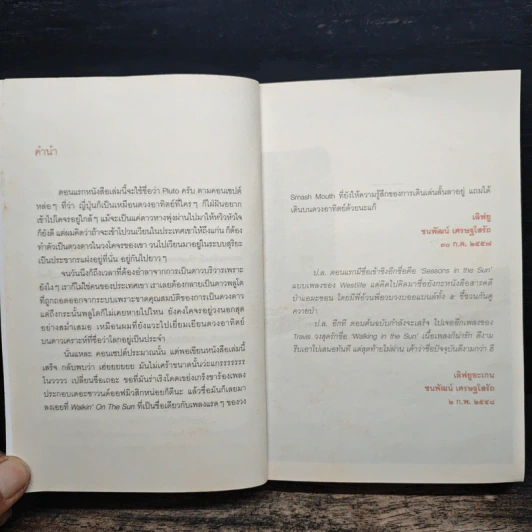 คำนำ
ตอนแรกหนังสือเล่มนี้จะใช้ชื่อว่า Pluto ครับ ตามคอนเซปต์
หล่อๆ ที่ว่า ญี่ปุ่นก็เป็นเหมือนดวงอาทิตย์ที่ใครๆ ก็ใฝ่ฝันอยาก
เข้าไปโคจรอยู่ใกล้ๆ แม้จะเป็นแค่ดาวหางพุ่งผ่านไปมาให้หวิวหัวใจ
ก็ยังดี แต่ผมคิดว่าถ้าจะเข้าไปวนเวียนในประเทศเขาให้ถึงแก่น ก็ต้อง
ทำตัวเป็นดวงดาวในวงโคจรของเขา วนไปเวียนมาอยู่ในระบบสุริยะ
เป็นประชากรแฝงอยู่ที่นั่น อยู่กันไปยาวๆ
จนวันนึงก็ถึงเวลาที่ต้องอำลาจากการเป็นดาวบริวารเพราะ
ยังไงๆ เราก็ไม่ใช่คนของประเทศเขา เราเลยต้องกลายเป็นดาวพลูโต
ที่ถูกถอดออกจากระบบเพราะขาดคุณสมบัติของการเป็นดวงดาว
แต่ถึงกระนั้นพลูโตก็ไม่เคยหายไปไหน ยังคงโคจรอยู่วงนอกสุด
อย่างสม่ำเสมอ เหมือนผมที่ยังแวะไปเยี่ยมเยียนดวงอาทิตย์
บนดาวเคราะห์ที่ชื่อว่าโลกอยู่เป็นประจำ
นั่นแหละ คอนเซปต์ประมาณนั้น แต่พอเขียนหนังสือเล่มนี้
เสร็จ กลับพบว่า เฮ่ยยยยยย มันไม่เศร้าขนาดนั้นว่ะแกรรรรรร
โนวววว เปลี่ยนชื่อเถอะ ขอที่มันร่าเริงโดดเย่งเกร็งขาร้องเพลง
ประกอบเดอะซาวนด์ออฟมิวสิกหน่อยก็ดีนะ แล้วชื่อมันก็เลยมา
ลงเอยที่ Walkin' On The Sun ที่เป็นชื่อเดียวกับเพลงแรดๆ ของวง
Smash Mouth ที่ยังให้ความรู้สึกของการเดินเล่นลั้นลาอยู่ แถมได้
เดินบนดวงอาทิตย์ด้วยนะแก๊
เลิฟยู
ชนพัฒน์ เศรษฐโสรัถ
๓๐ ก.ค. ๒๕๕๗
ป.ล. ตอนแรกมีชื่อเข้าชิงอีกชื่อคือ 'Seasons in the Sun'
แบบเพลงของ Westlife แต่คิดไปคิดมาชื่อยังกะหนังสือสารคดี
ป่าแอมะซอน โดยมีพี่อ้วนพี่อวบวงบอยแบนด์ทั้ง ๕ ชี้ชวนกันดู
ควายป่า
ป.ล. อีกที ตอนต้นฉบับกำลังจะเสร็จ ไปเจออีกเพลงของ
Travis วงสุดรักชื่อ 'Walking in the Sun' เนื้อเพลงก็น่ารัก ดีงาม
รีบเอาไปเสนอทันที แต่สุดท้ายไม่ผ่าน เค้าว่าชื่อปัจจุบันดีงามกว่า ฮื
เลิฟยูจะเกน
ชนพัฒน์ เศรษฐโสรัถ
๒ ก.พ. ๒๕๕๘